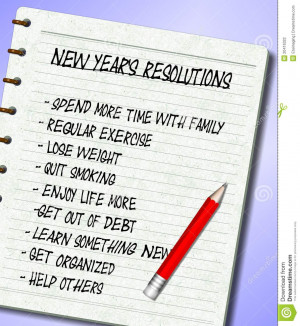 NEW YEAR'S RESOLUTIONS
- SPEND MORE TIME WITH FAMILY
- REGULAR EXERCISE
- LOSE WEIGHT
- QUIT SMOKING
- ENJOY LIFE MORE
- GET OUT OF DEBT
- LEARN SOMETHING NEW
- GET ORGANIZED
- HELP OTHERS
Download from
Dreamstime.com